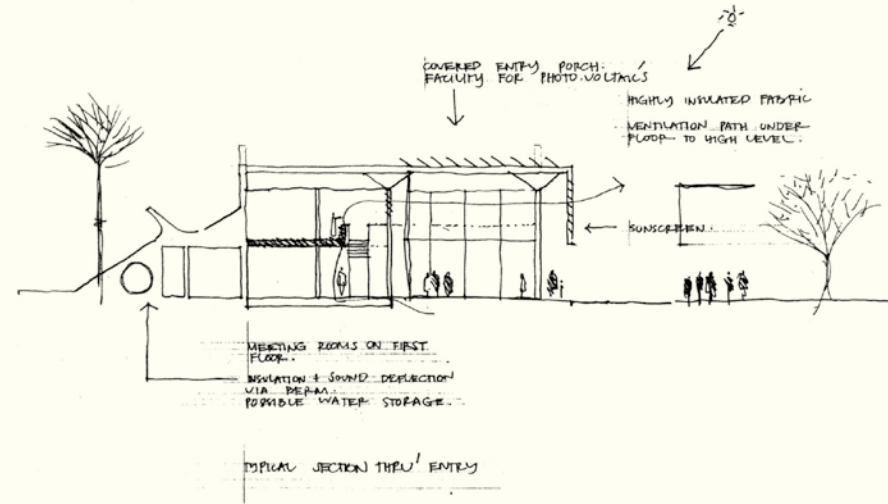 COVERED ENTRY PORCH.
FACILITY FOR PHOTO.VOLTAICS
HIGHLY INSULATED FABRIC
VENTILATION PATH UNDER
FLOOR TO HIGH LEVEL.
SUNSCREEN.
MEETING ROOMS ON FIRST
FLOOR.
INSULATION + SOUND DEFLECTION
VIA BERM.
POSSIBLE WATER STORAGE.
TYPICAL SECTION THRU' ENTRY